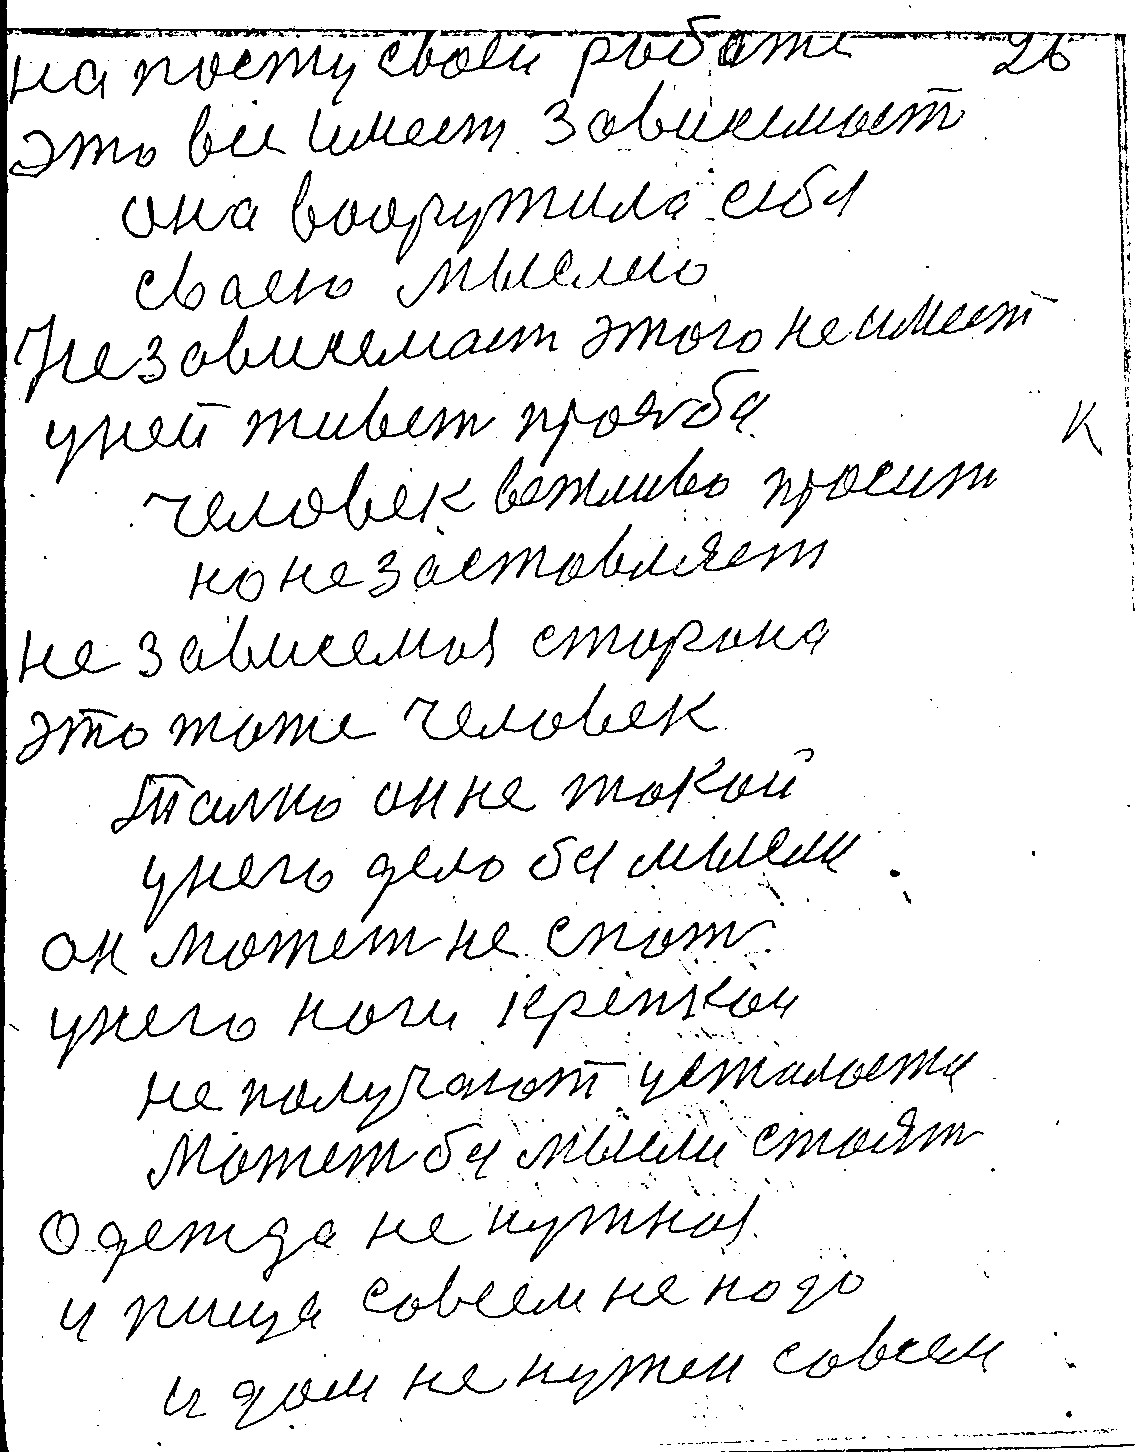 на посту своей работе 26
это все имеет зависимаст
она вооружила себя
сваею мыслию
Не зависемаст этого не имеет
у ней живет прозьба
К
человек вежливо просит
но не заставляет
не зависемоя сторона
это тоже человек
Только он не такой
у него дело бы мысли
он может не спат
у него ноги крепкои
не получают усталоста
Может бы мысли стоят
Одежда не нужноя
и пища совсем не надо
и дом не нужен совсем